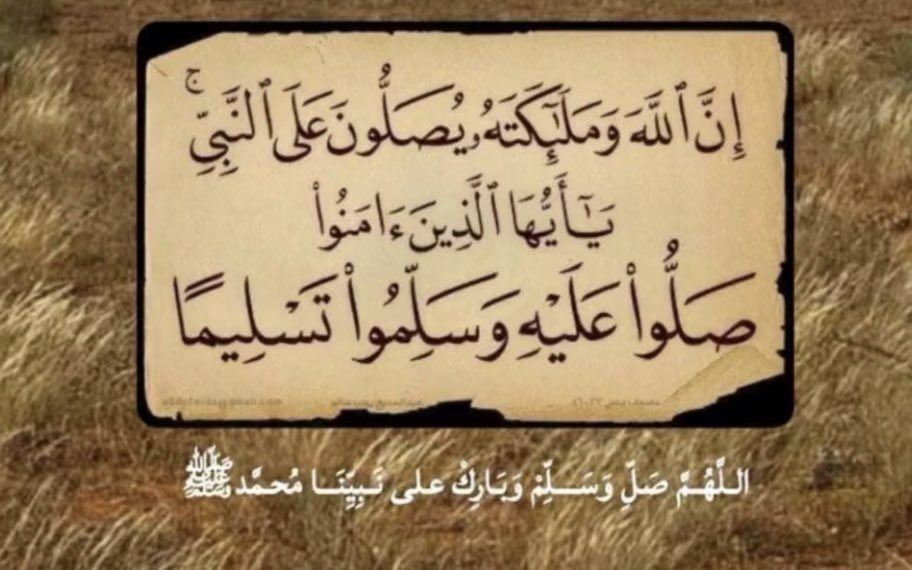 إِنَّ ٱللَّهَ وَمَلَـٰٓئِكَتَهُۥ يُصَلُّونَ عَلَى ٱلنَّبِىِّ ۚ
يَـٰٓأَيُّهَا ٱلَّذِينَ ءَامَنُوا۟
صَلُّوا۟ عَلَيْهِ وَسَلِّمُوا۟ تَسْلِيمًا
اللَّهُمَّ صَلِّ وَسَلِّمْ وَبَارِكْ على نَبِيِّنَا مُحمَّد ﷺ